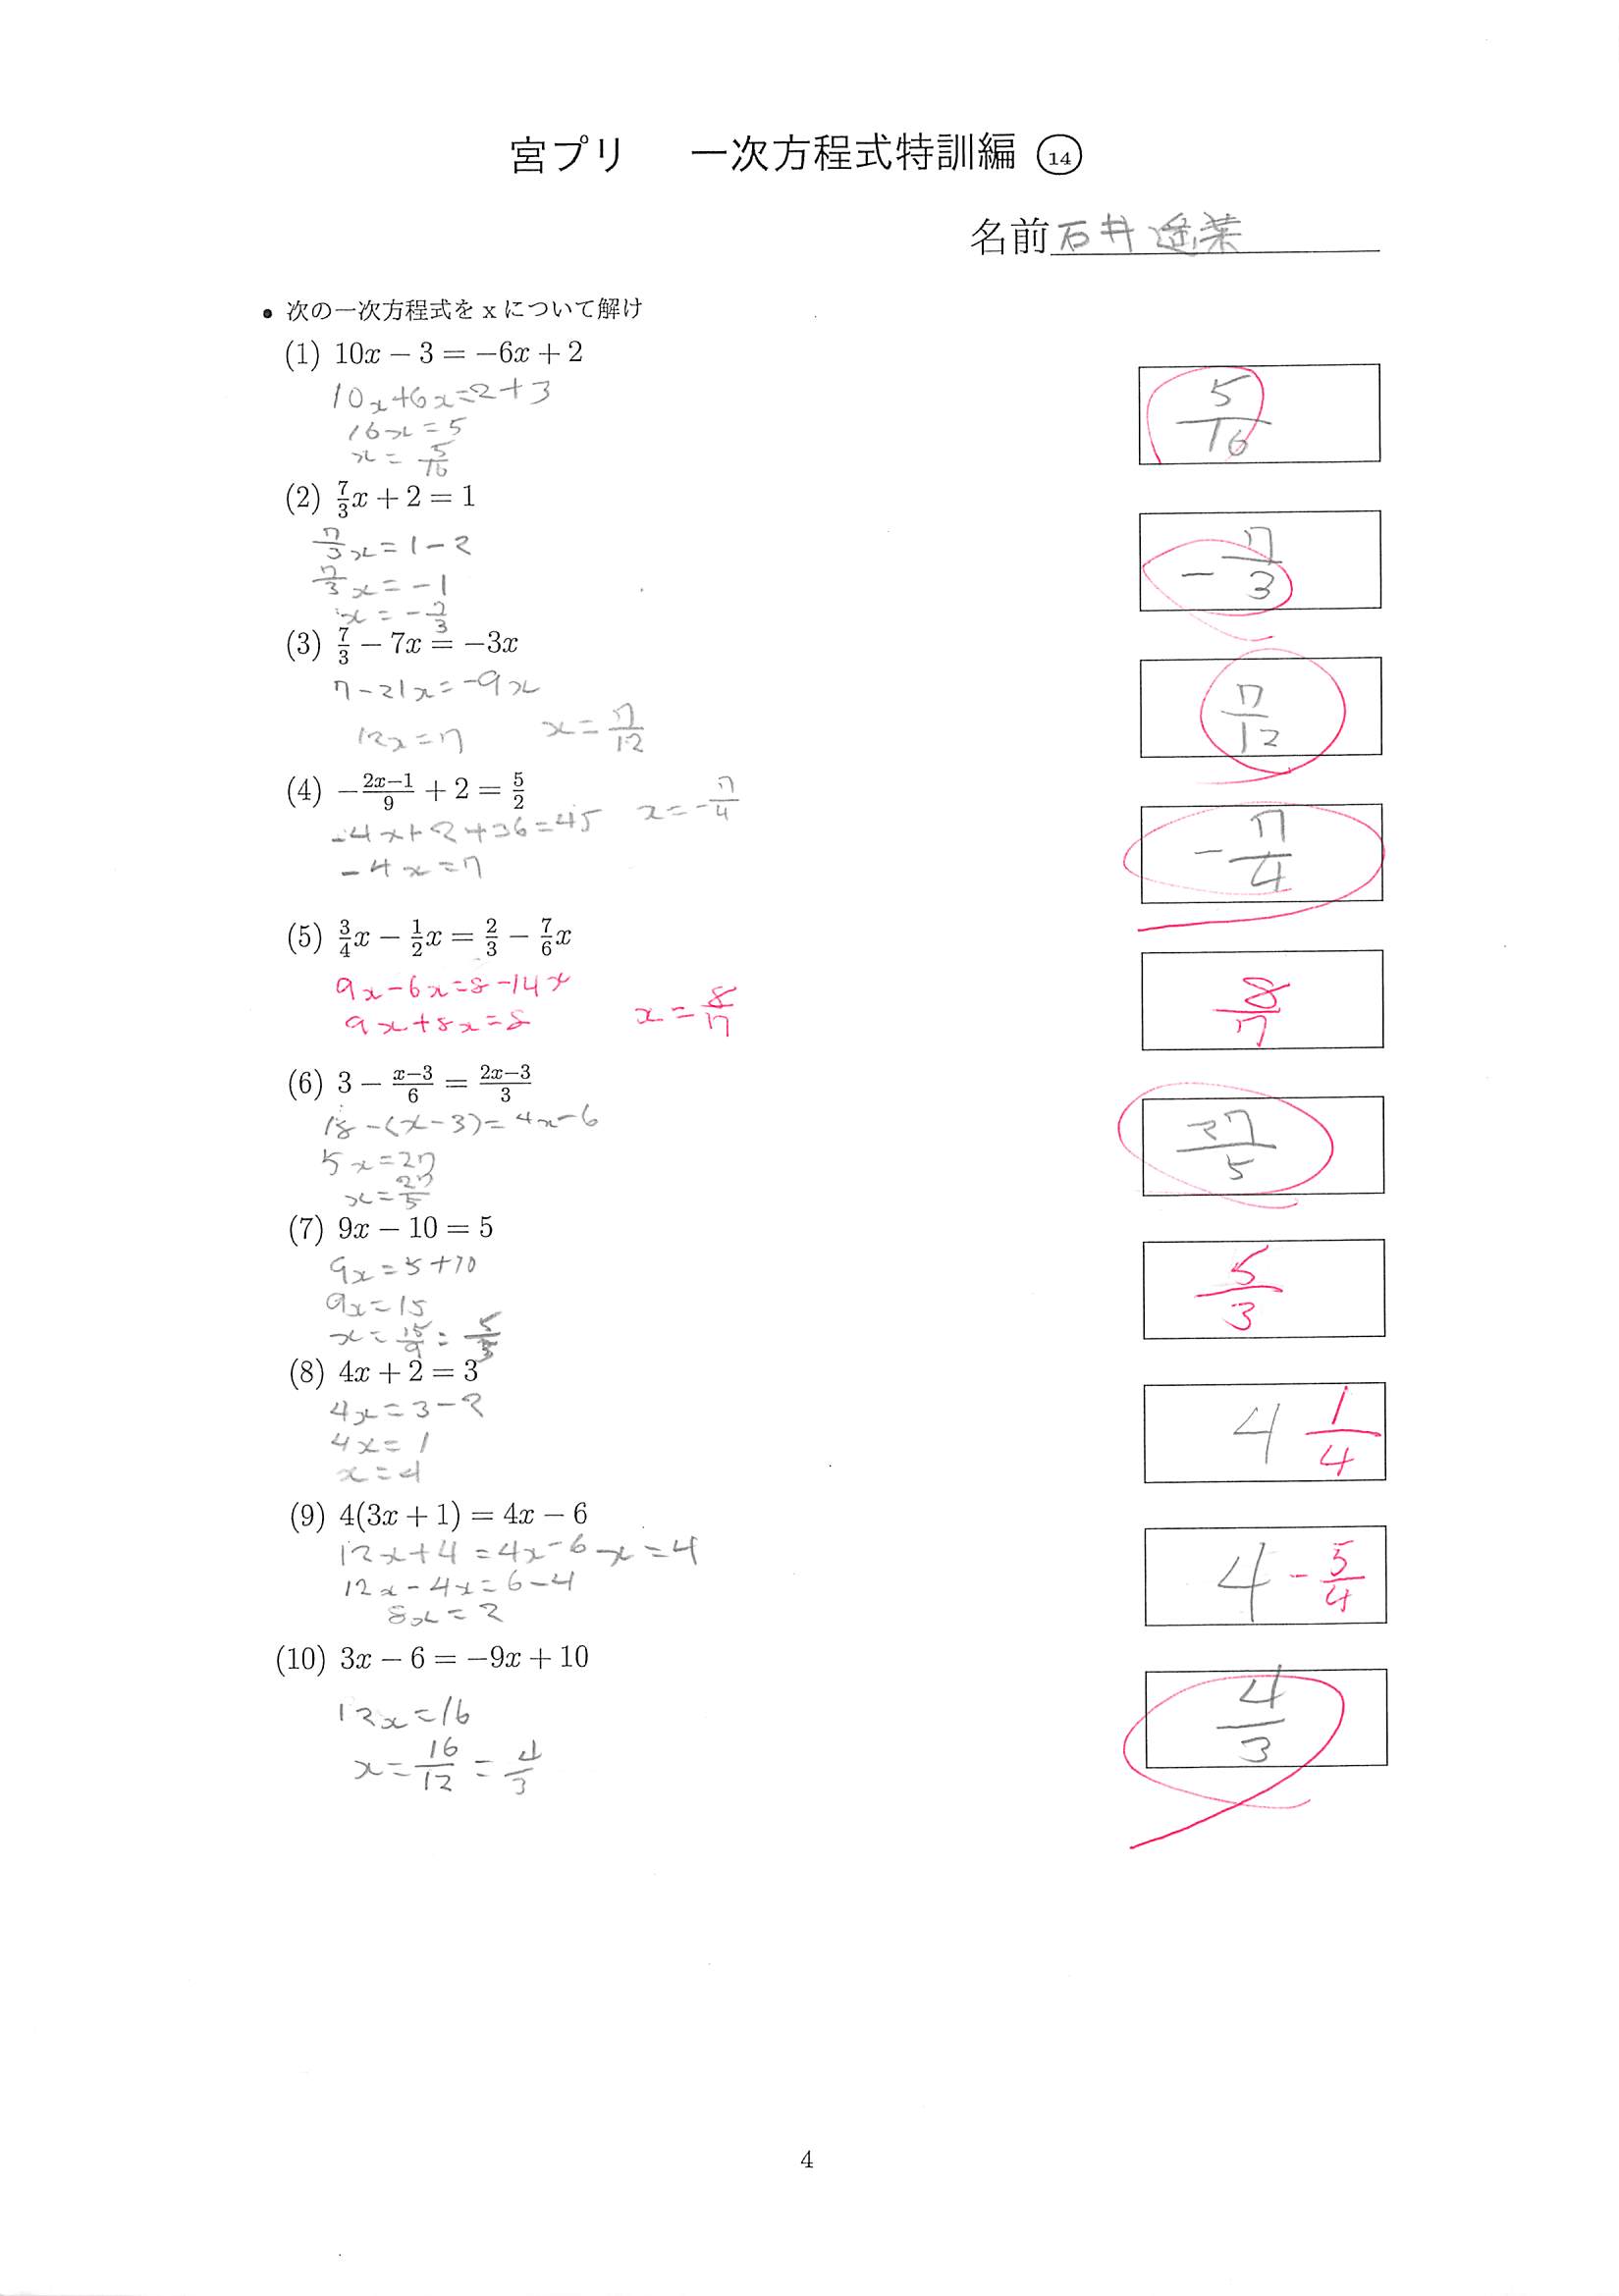 宮プリ 一次方程式特訓編 ⑭
名前 石井遥葉
• 次の一次方程式を x について解け
(1) 10x − 3 = −6x + 2
10x+6x=2+3
16x=5
x=5/16
5/16
(2) 7/3x + 2 = 1
7/3x=1-2
7/3x=-1
x=-7/3
-7/3
(3) 7/3 − 7x = −3x
7-21x=-9x
12x=7 x=7/12
7/12
(4) −(2x−1)/9 + 2 = 5/2
-4x+2+36=45 x=-7/4
-4x=7
-7/4
(5) 3/4x − 1/2x = 2/3 − 7/6x
9x-6x=8-14x
9x+8x=8 x=8/17
8/17
(6) 3 − (x−3)/6 = (2x−3)/3
18-(x-3)=4x-6
5x=27
x=27/5
27/5
(7) 9x − 10 = 5
9x=5+10
9x=15
x=15/9=5/3
5/3
(8) 4x + 2 = 3
4x=3-2
4x=1
x=4
4 1/4
(9) 4(3x + 1) = 4x − 6
12x+4=4x-6 x=4
12x-4x=6-4
8x=2
4 -5/4
(10) 3x − 6 = −9x + 10
12x=16
x=16/12=4/3
4/3
4